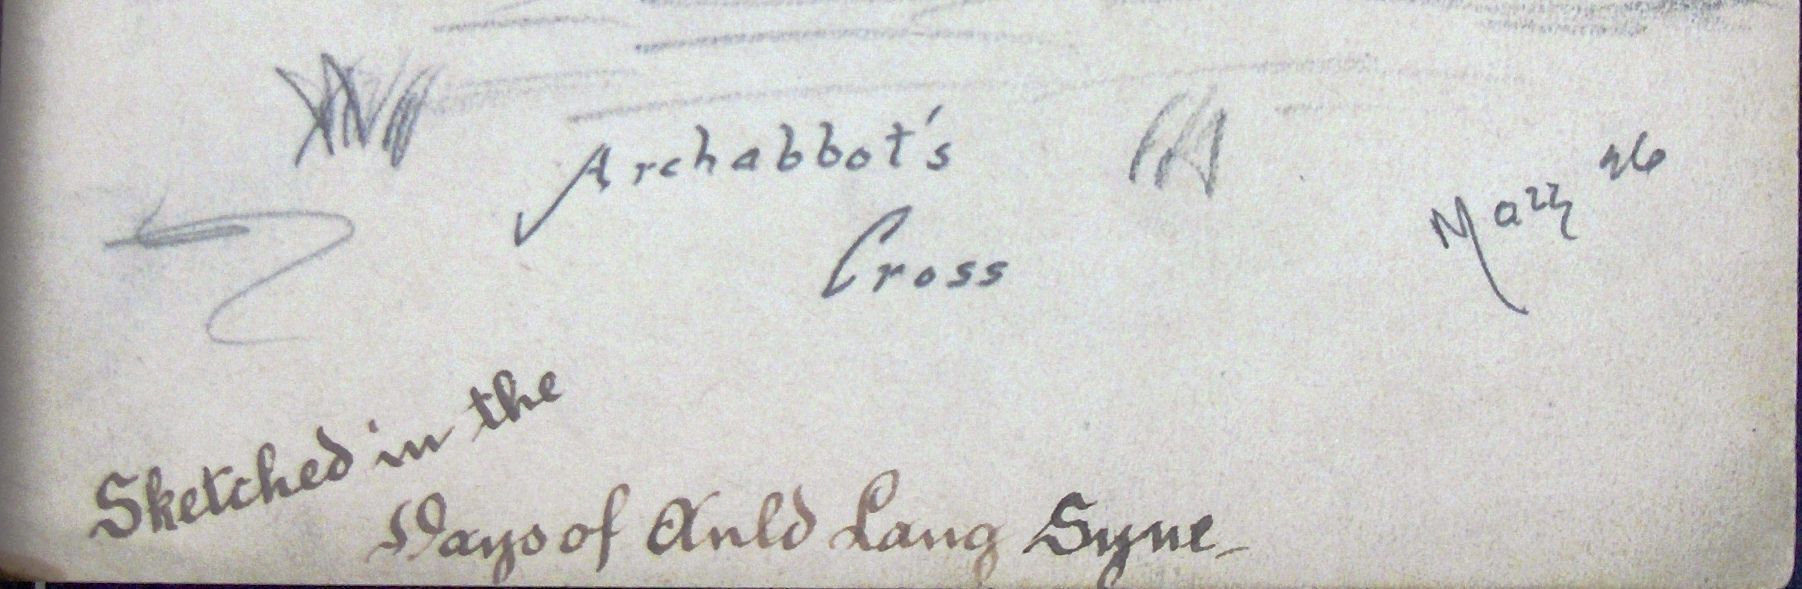 Archabbot's
Cross
Sketched in the
Days of Auld Lang Syne